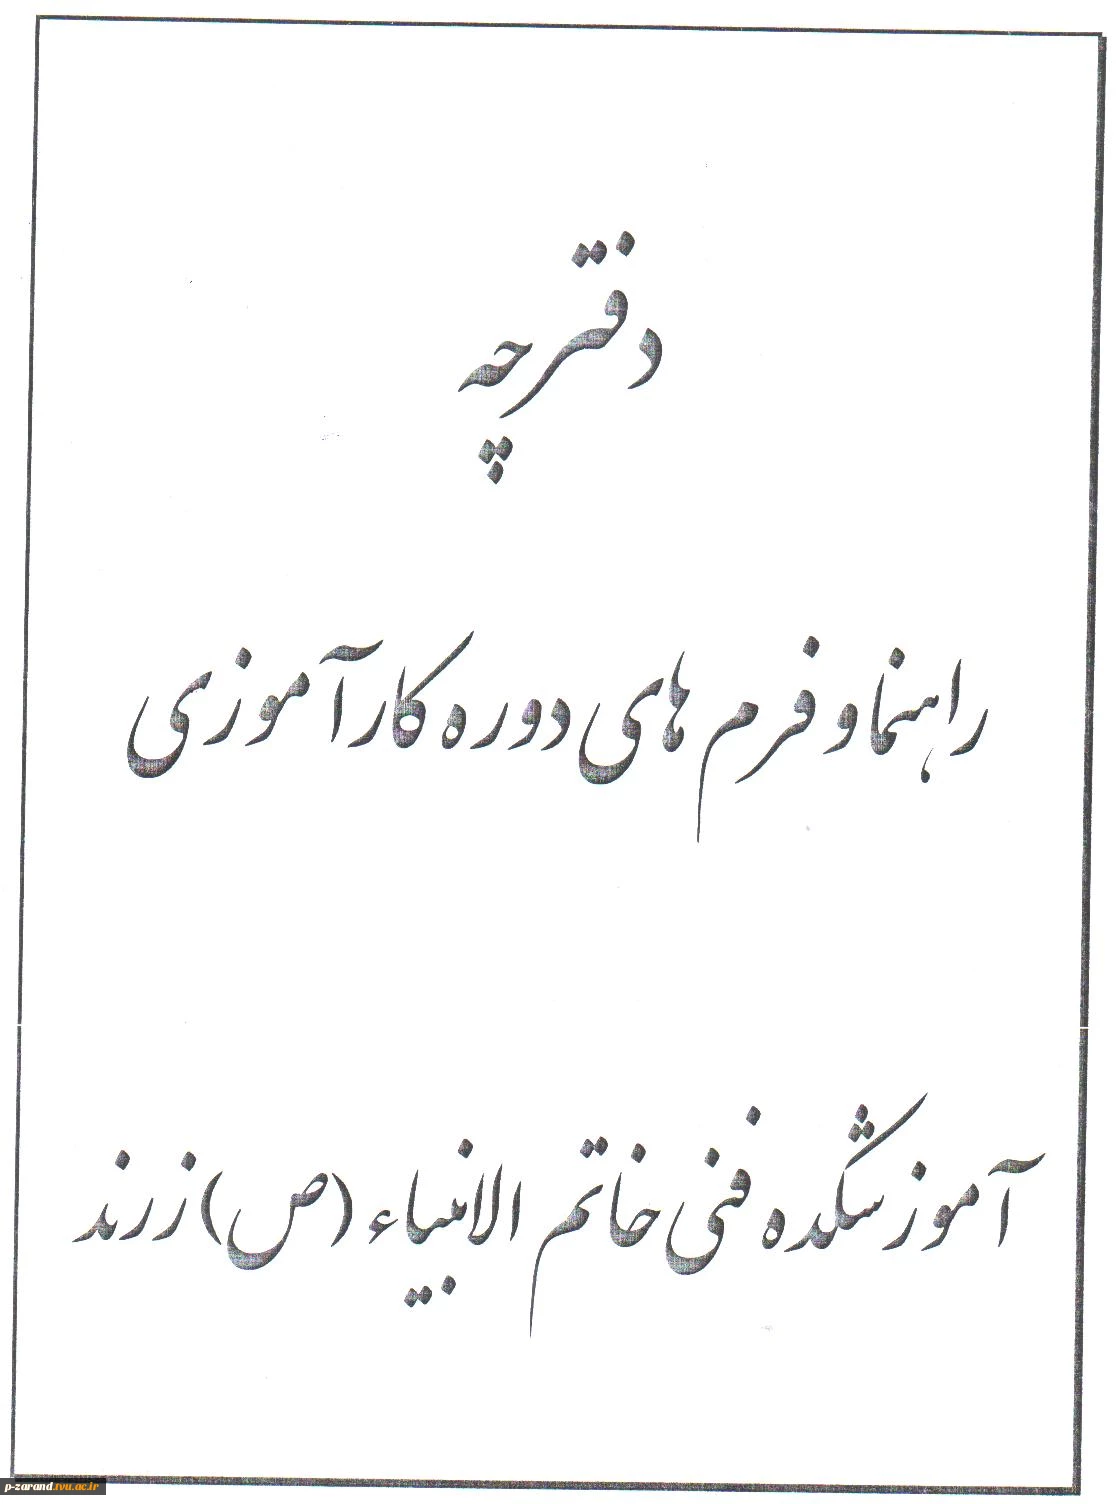 دفترچه
راهنما و فرم های دوره کارآموزی
آموزشکده فنی خاتم الانبیاء (ص) زرند
p-zarand.tvu.ac.ir